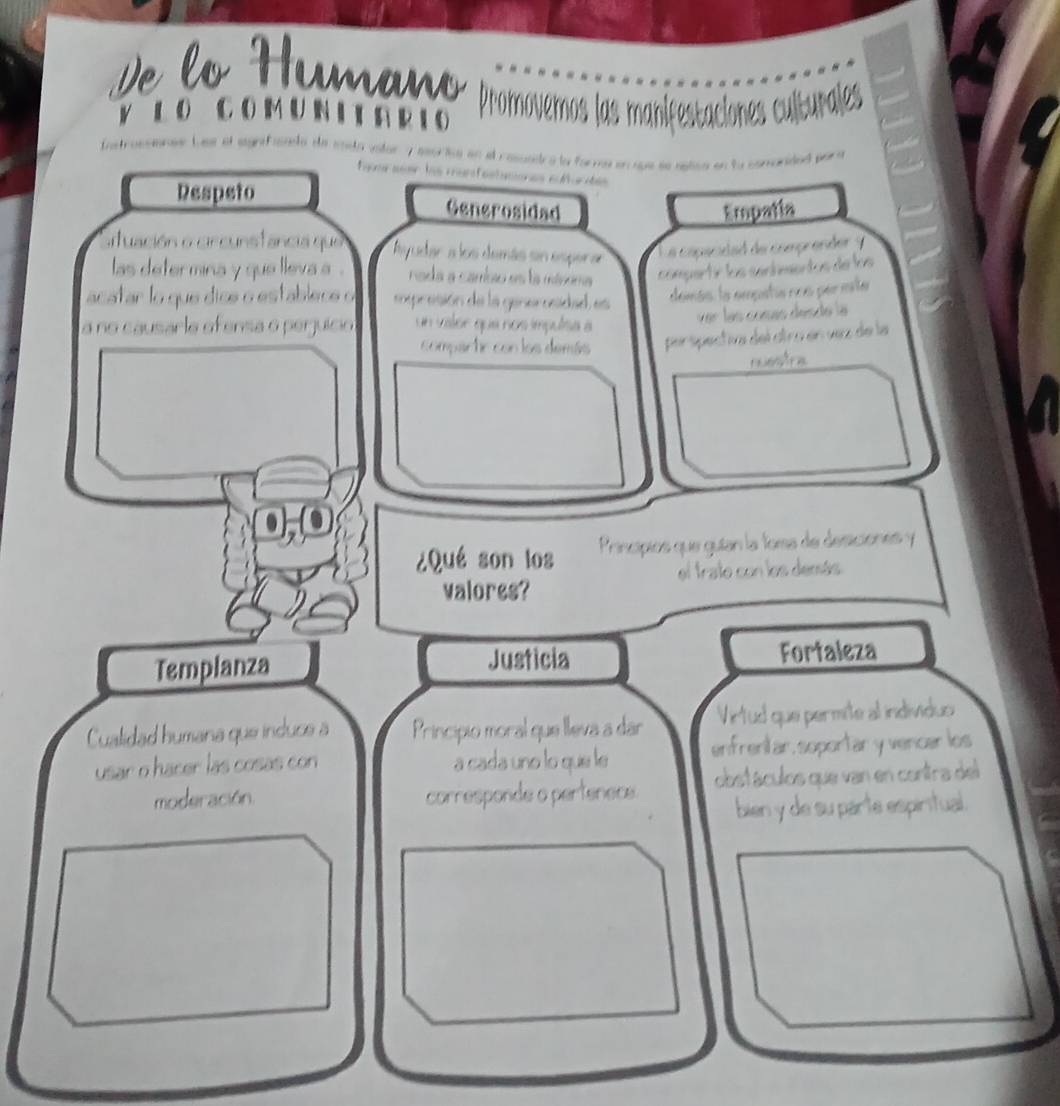 De lo Humano
Y LO COMUNITARIO
Promovemos las manifestaciones culturales
Instrucciones: Lee el significado de cada valor y escribe en el recuadro la forma en que se aplica en tu comunidad para
favorecer las manifestaciones culturales
Respeto
Situación o circunstancia que
las determina y que lleva a
acatar lo que dice o establece o
a no causarle ofensa o perjuicio
Generosidad
Ayudar a los demás sin esperar
nada a cambio es la máxima
expresión de la generosidad, es
un valor que nos impulsa a
compartir con los demás
Empatía
La capacidad de comprender y
compartir los sentimientos de los
demás, la empatía nos permite
ver las cosas desde la
perspectiva del otro en vez de la
nuestra
¿Qué son los
valores?
Principios que guían la toma de desiciones y
el trato con los demás
Templanza
Cualidad humana que induce a
usar o hacer las cosas con
moderación.
Justicia
Principio moral que lleva a dar
a cada uno lo que le
corresponde o pertenece.
Fortaleza
Virtud que permite al individuo
enfrentar, soportar y vencer los
obstáculos que van en contra del
bien y de su parte espiritual.